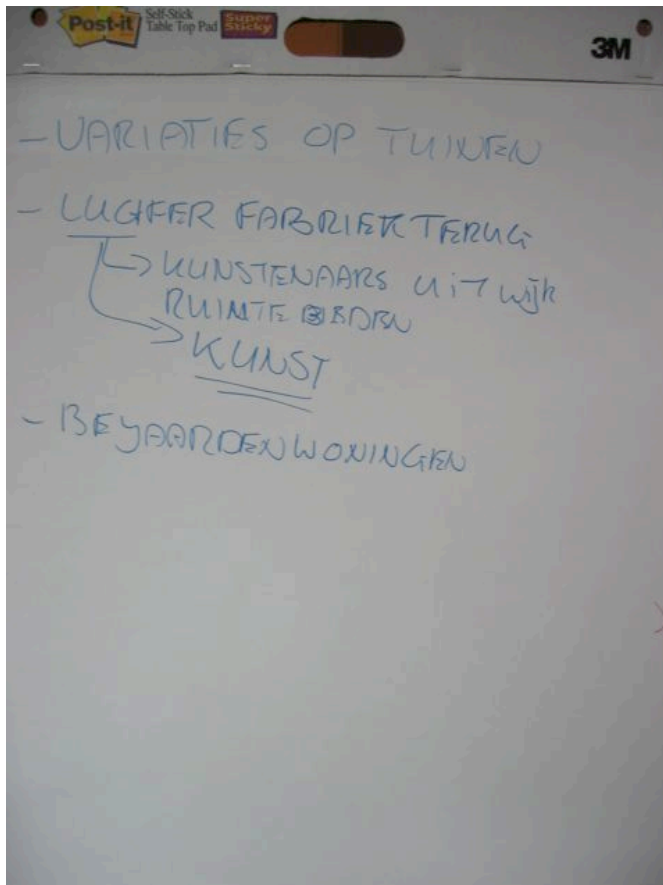 Post-it Self-Stick Table Top Pad Super Sticky
3M
- VARIATIES OP TUINEN
- LUCIFER FABRIEK TERUG
KUNSTENAARS UIT Wijk
RUIMTE BIEDEN
KUNST
- BEYAARDENWONINGEN